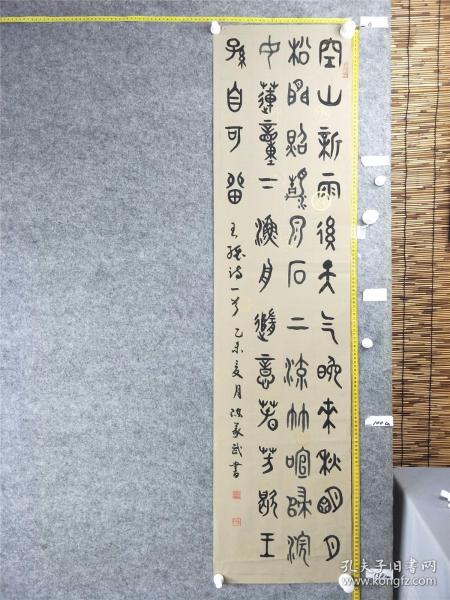 空山新雨後天气晚來秋明月
松間照清泉石上流竹喧歸浣
女蓮動下漁舟隨意春芳歇王
孫自可留
王維詩一首 乙未夏月 武書
孔夫子旧书网
kongfz.com